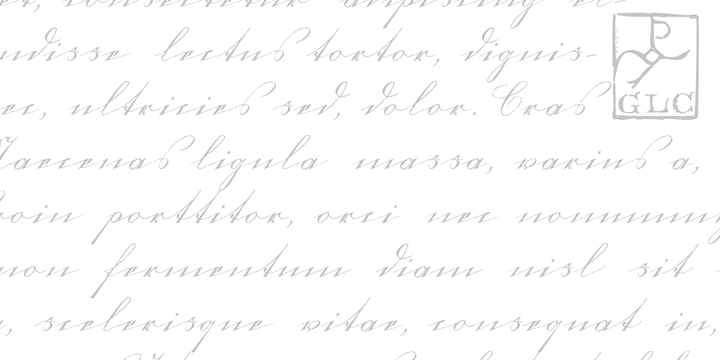 et, consectetur adipiscing el-
ndisse lectus tortor, dignis-
GLC
ec, ultricies sed, dolor. Cras
Maecenas ligula massa, varius a,
roin porttitor, orci nec nonummy
non fermentum diam nisl sit
e, scelerisque vitae, consequat in,